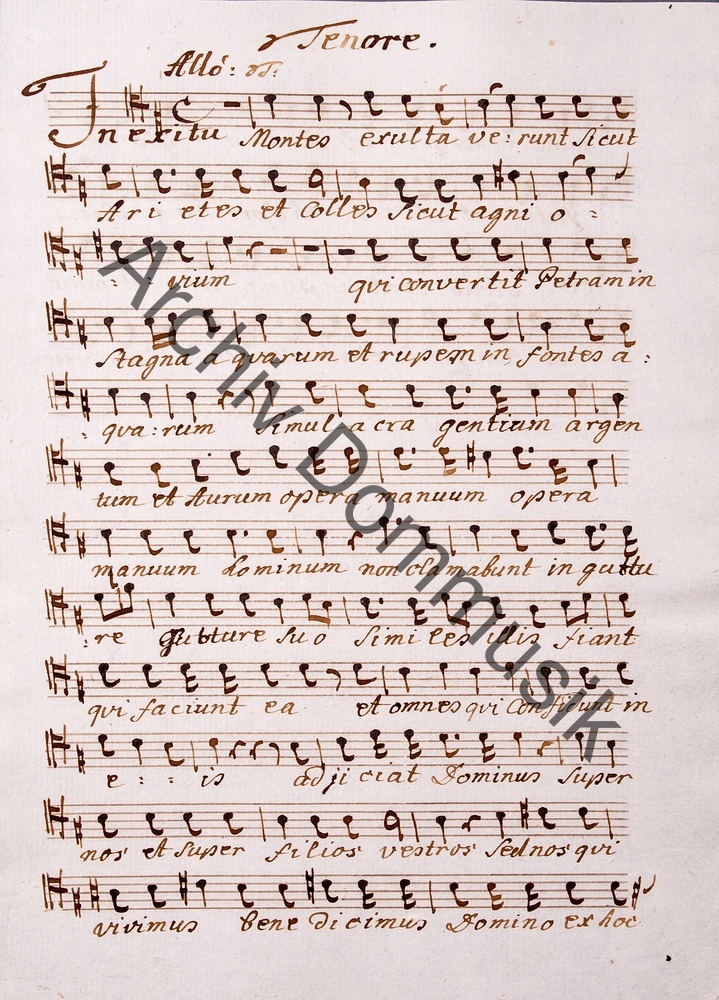 Tenore.
Allo: T:
In exitu Montes exulta ve: runt Sicut
Ari etes et Colles Sicut agni o =
: : vium qui convertit Petram in
Stagna a quarum et rupem in fontes a :
: qua: rum Simul acra gentium argen
tum et Aurum opera manuum opera
manuum hominum non clamabunt in guttu
: re gutture Suo Simi les illis fiant
qui faciunt ea et omnes qui Confidunt in
e : : is adji ciat Dominus Super
nos et Super filios vestros Sed nos qui
vivimus bene dicimus Domino ex hoc
Archiv Dommusik